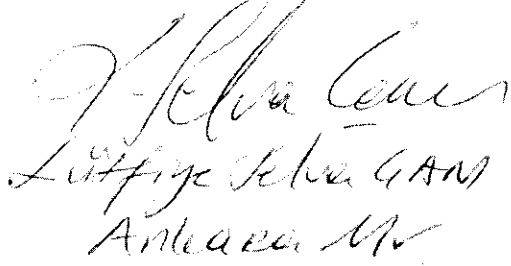 Selva Çam
Lütfiye Selva ÇAM
Ankara Mv